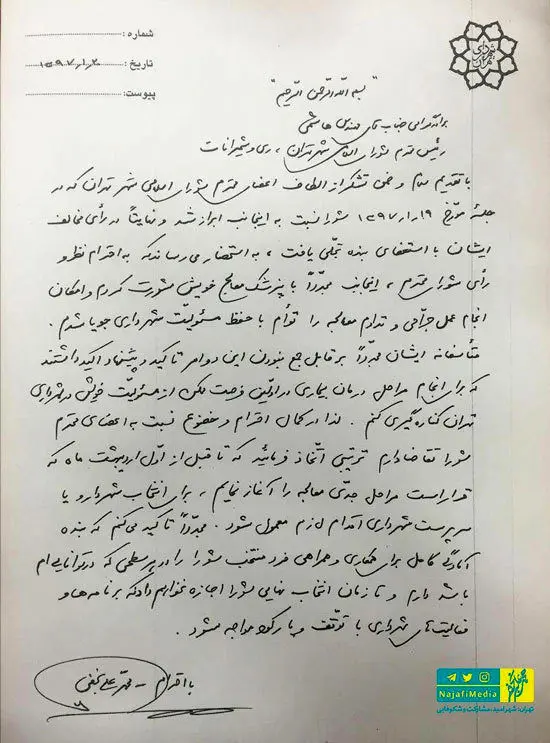 شماره :
تاریخ : ۱۳۹۷/۱/۲۰
پیوست :
شهرداری تهران
"بسم الله الرحمن الرحیم"
برادر گرامی جناب آقای مهندس هاشمی
رئیس محترم شورای اسلامی شهر تهران، ری و شمیرانات
با تقدیم سلام و ضمن تشکر از الطاف اعضای محترم شورای اسلامی شهر تهران که در
جلسه مورّخ ۱۳۹۷/۱/۱۹ شورا نسبت به اینجانب ابراز شد و نهایتاً در رأی مخالف
ایشان با استعفای بنده تجلّی یافت، به استحضار می‌رساند که به احترام نظر و
رأی شورای محترم، اینجانب مجدّداً با پزشک معالج خویش مشورت کردم و امکان
انجام عمل جراحی و تداوم معالجه را توأم با حفظ مسئولیّت شهرداری جویا شدم.
متأسفانه ایشان مجدّداً بر قابل جمع نبودن این دو امر تاکید و پیشنهاد اکید داشتند
که برای انجام مراحل درمان بیماری در اولین فرصت ممکن از مسئولیّت خویش در شهرداری
تهران کناره گیری کنم. لذا در کمال احترام و خضوع نسبت به اعضای محترم
شورا تقاضا دارم ترتیبی اتّخاذ فرمائید که تا قبل از اوّل اردیبهشت ماه که
قرار است مراحل جدّی معالجه را آغاز نمایم، برای انتخاب شهردار و یا
سرپرست شهرداری اقدام لازم معمول شود. مجدّداً تاکید می‌کنم که بنده
آمادگی کامل برای همکاری و همراهی فرد منتخب شورا را در هر سطحی که در توانایی‌ام
باشد دارم و تا زمان انتخاب نهایی شورا اجازه نخواهم داد که برنامه‌ها و
فعالیت‌های شهرداری با توقّف و یا رکود مواجه شود.
با احترام - محمد علی نجفی
NajafiMedia
تهران؛ شهر امید، مشارکت و شکوفایی